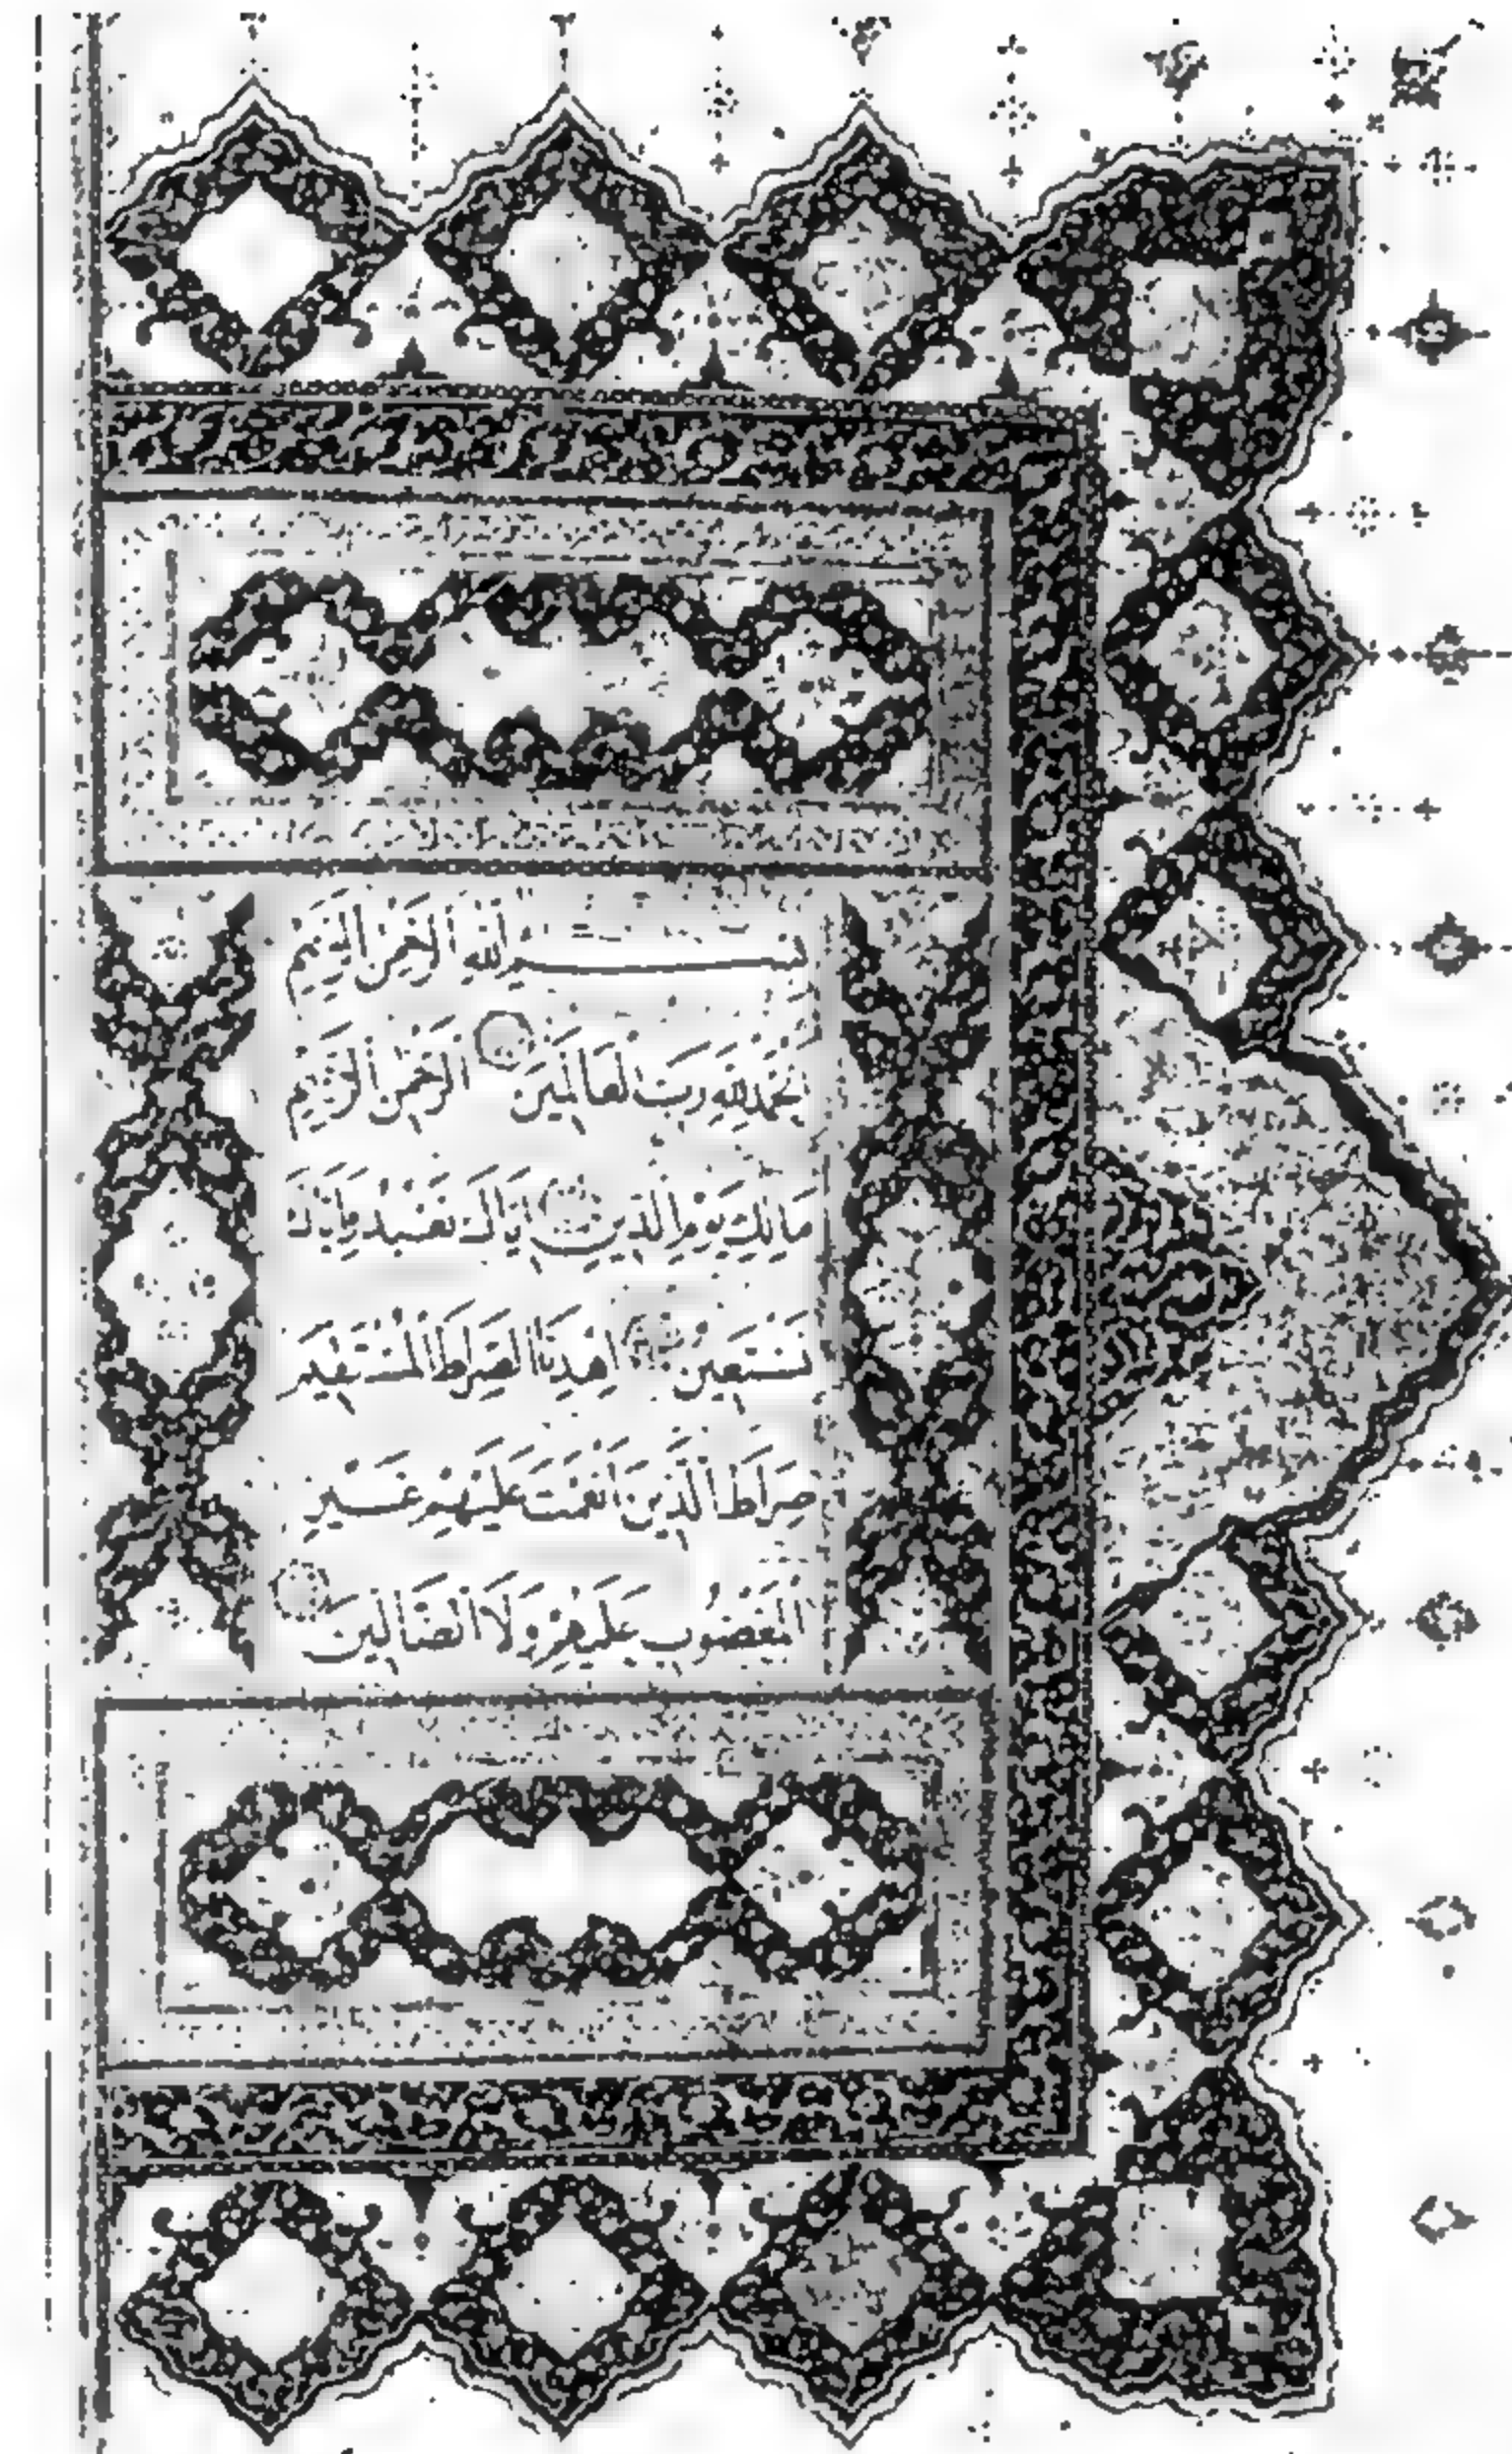 بِسْمِ اللهِ الرَّحْمٰنِ الرَّحِيْمِ
اَلْحَمْدُ لِلّٰهِ رَبِّ الْعَالَمِيْنَ الرَّحْمٰنِ الرَّحِيْمِ
مَالِكِ يَوْمِ الدِّيْنِ اِيَّاكَ نَعْبُدُ وَاِيَّاكَ
نَسْتَعِيْنُ اِهْدِنَا الصِّرَاطَ الْمُسْتَقِيْمَ
صِرَاطَ الَّذِيْنَ اَنْعَمْتَ عَلَيْهِمْ غَيْرِ
الْمَغْضُوْبِ عَلَيْهِمْ وَلَا الضَّالِّيْنَ